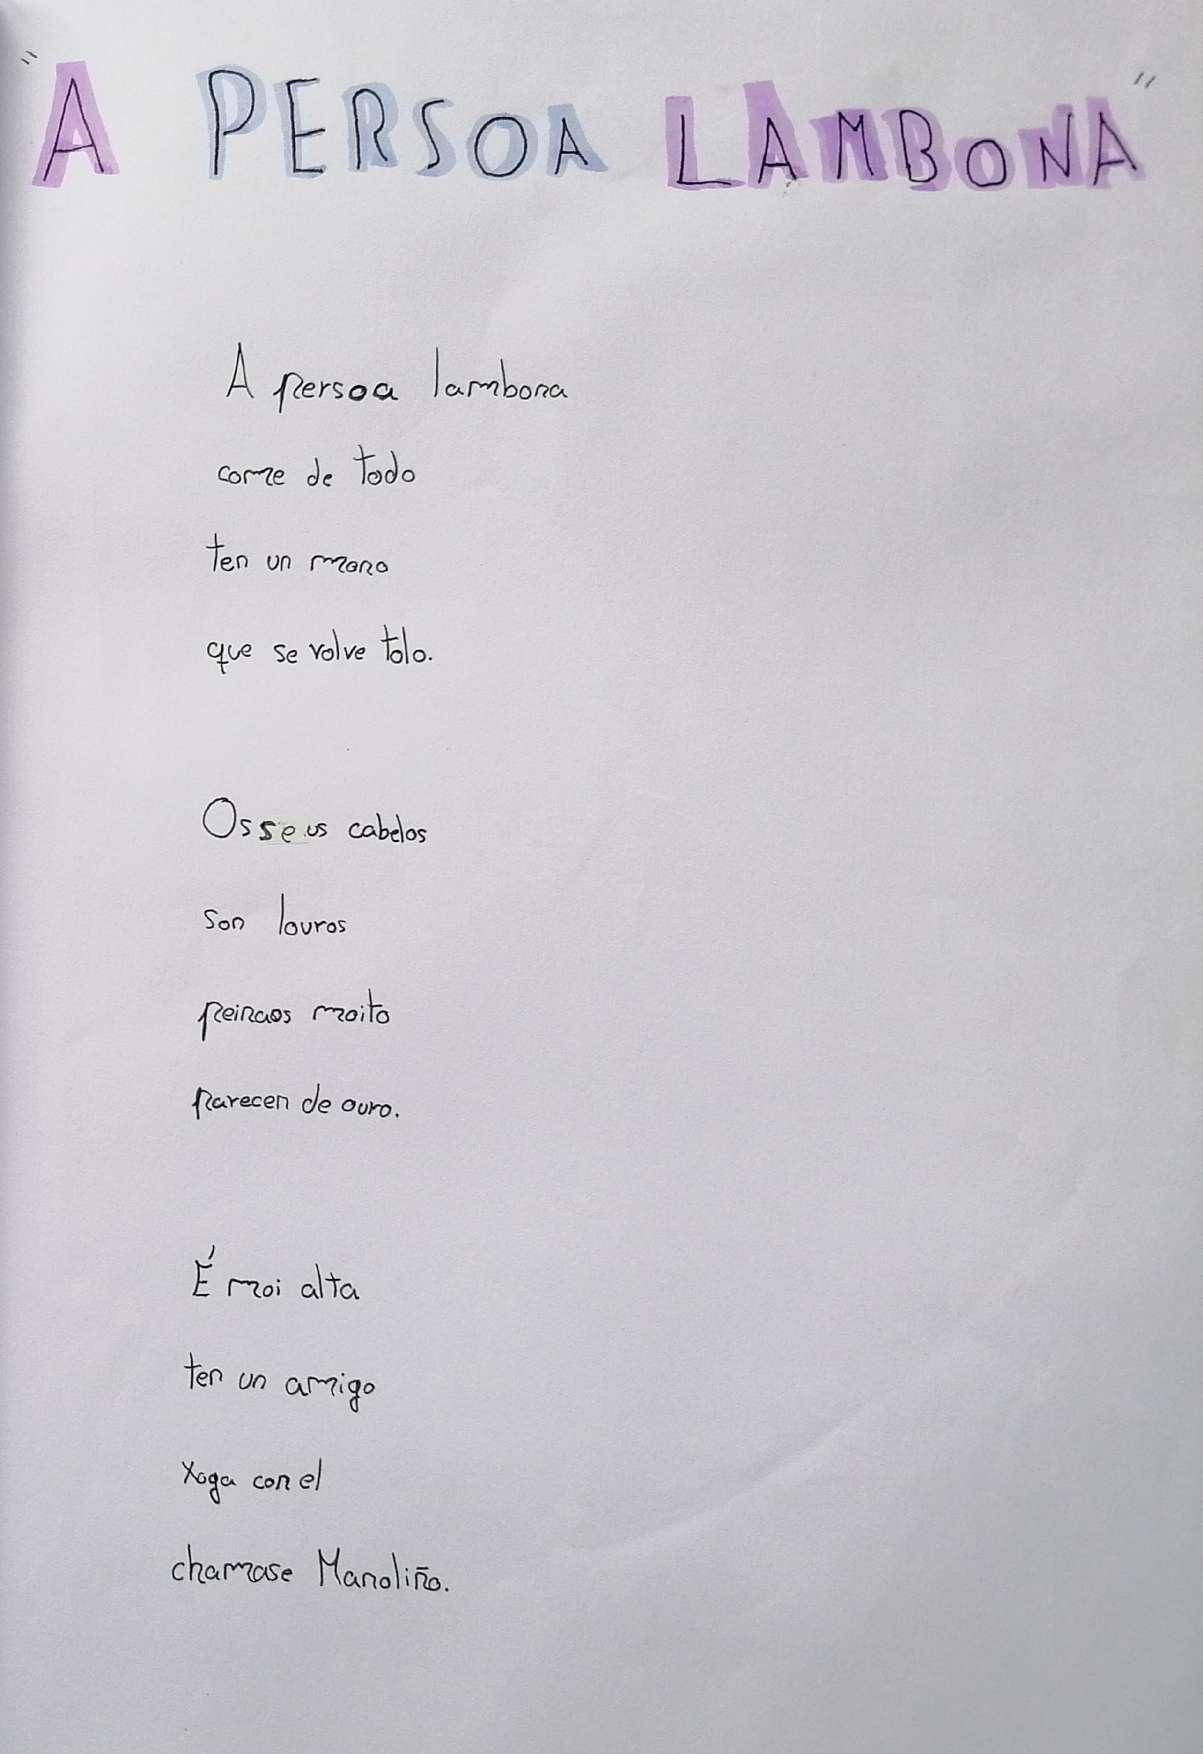 "A PERSOA LAMBONA"
A persoa lambona
come de todo
ten un mono
que se volve tolo.
Os seus cabelos
son louros
peinaos moito
parecen de ouro.
É moi alta
ten un amigo
xoga con el
chamase Manoliño.